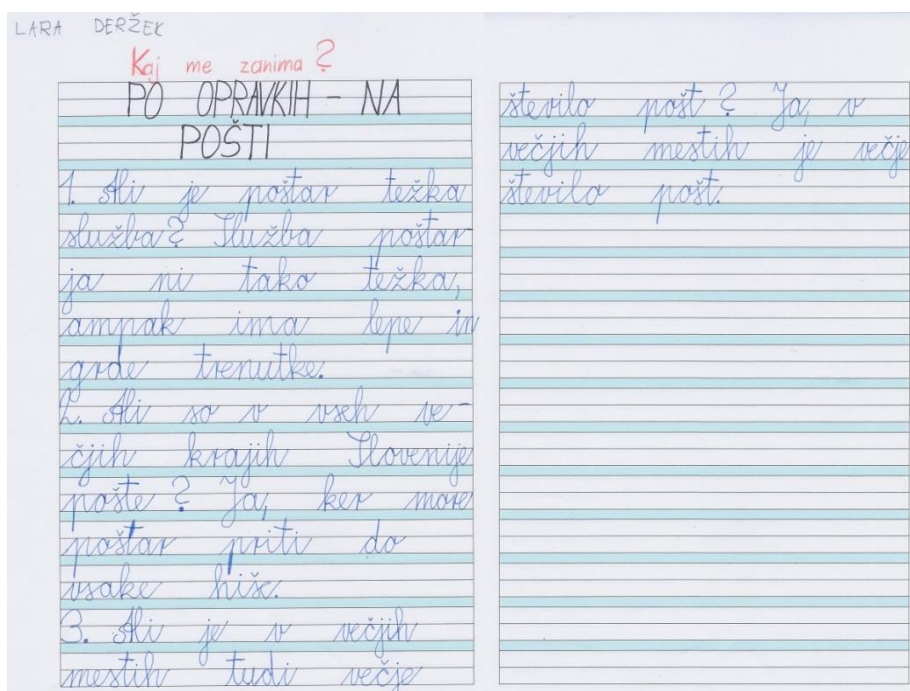 LARA DERŽEK
Kaj me zanima?
PO OPRAVKIH - NA
POŠTI
1. Ali je poštar težka
služba? Služba poštar-
ja ni tako težka,
ampak ima lepe in
grde trenutke.
2. Ali so v vseh ve-
čjih krajih Slovenije
pošte? Ja, ker more
poštar priti do
vsake hiše.
3. Ali je v večjih
mestih tudi večje
število pošt? Ja, v
večjih mestih je večje
število pošt.